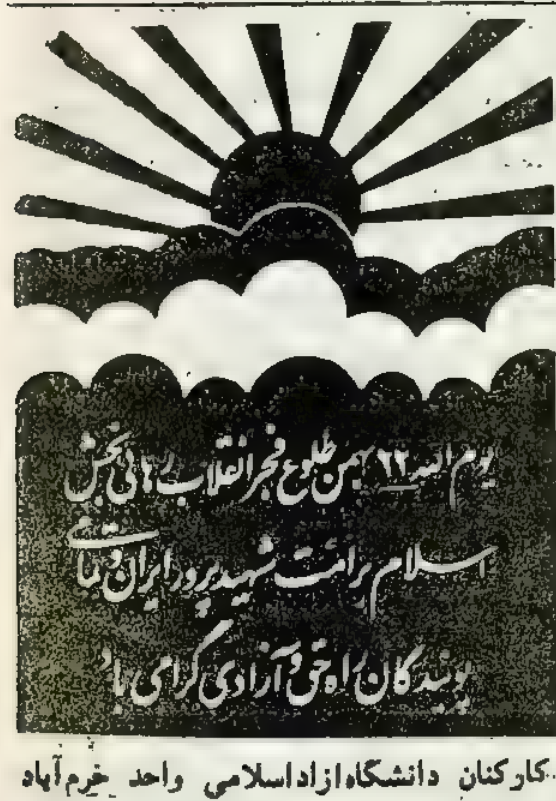 یوم الله ۲۲ بهمن طلوع فجر انقلاب رهائی بخش
اسلام بر امت شهیدپرور ایران و تمامی
پویندگان راه حق و آزادی گرامی باد
کارکنان دانشگاه ازاد اسلامی واحد خرم آباد